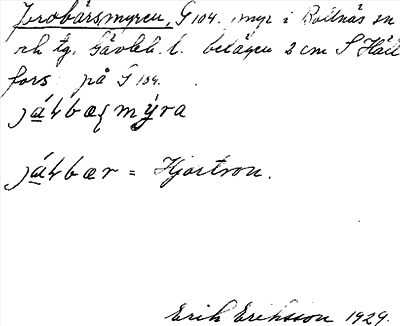 Jrobärsmyren, G 104. myr i Bollnäs sn
och tg, Gävleb. l. belägen 2 cm S Häll
fors på G 104.
mýra
= Hjortron.
Erik Eriksson 1929.